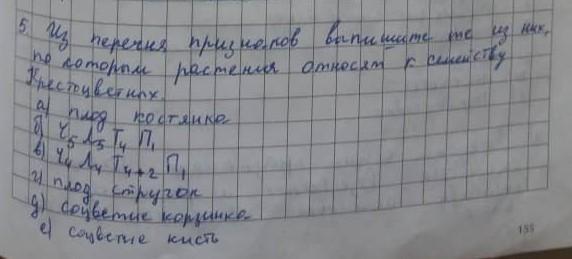 5. Из перечня признаков выпишите те из них,
по которым растения относят к семейству
Крестоцветных.
а) плод костянка
б) Ч5 Л5 Т4 П1
в) Ч4 Л4 Т4+2 П1
г) плод стручок
д) соцветие корзинка
е) соцветие кисть
155